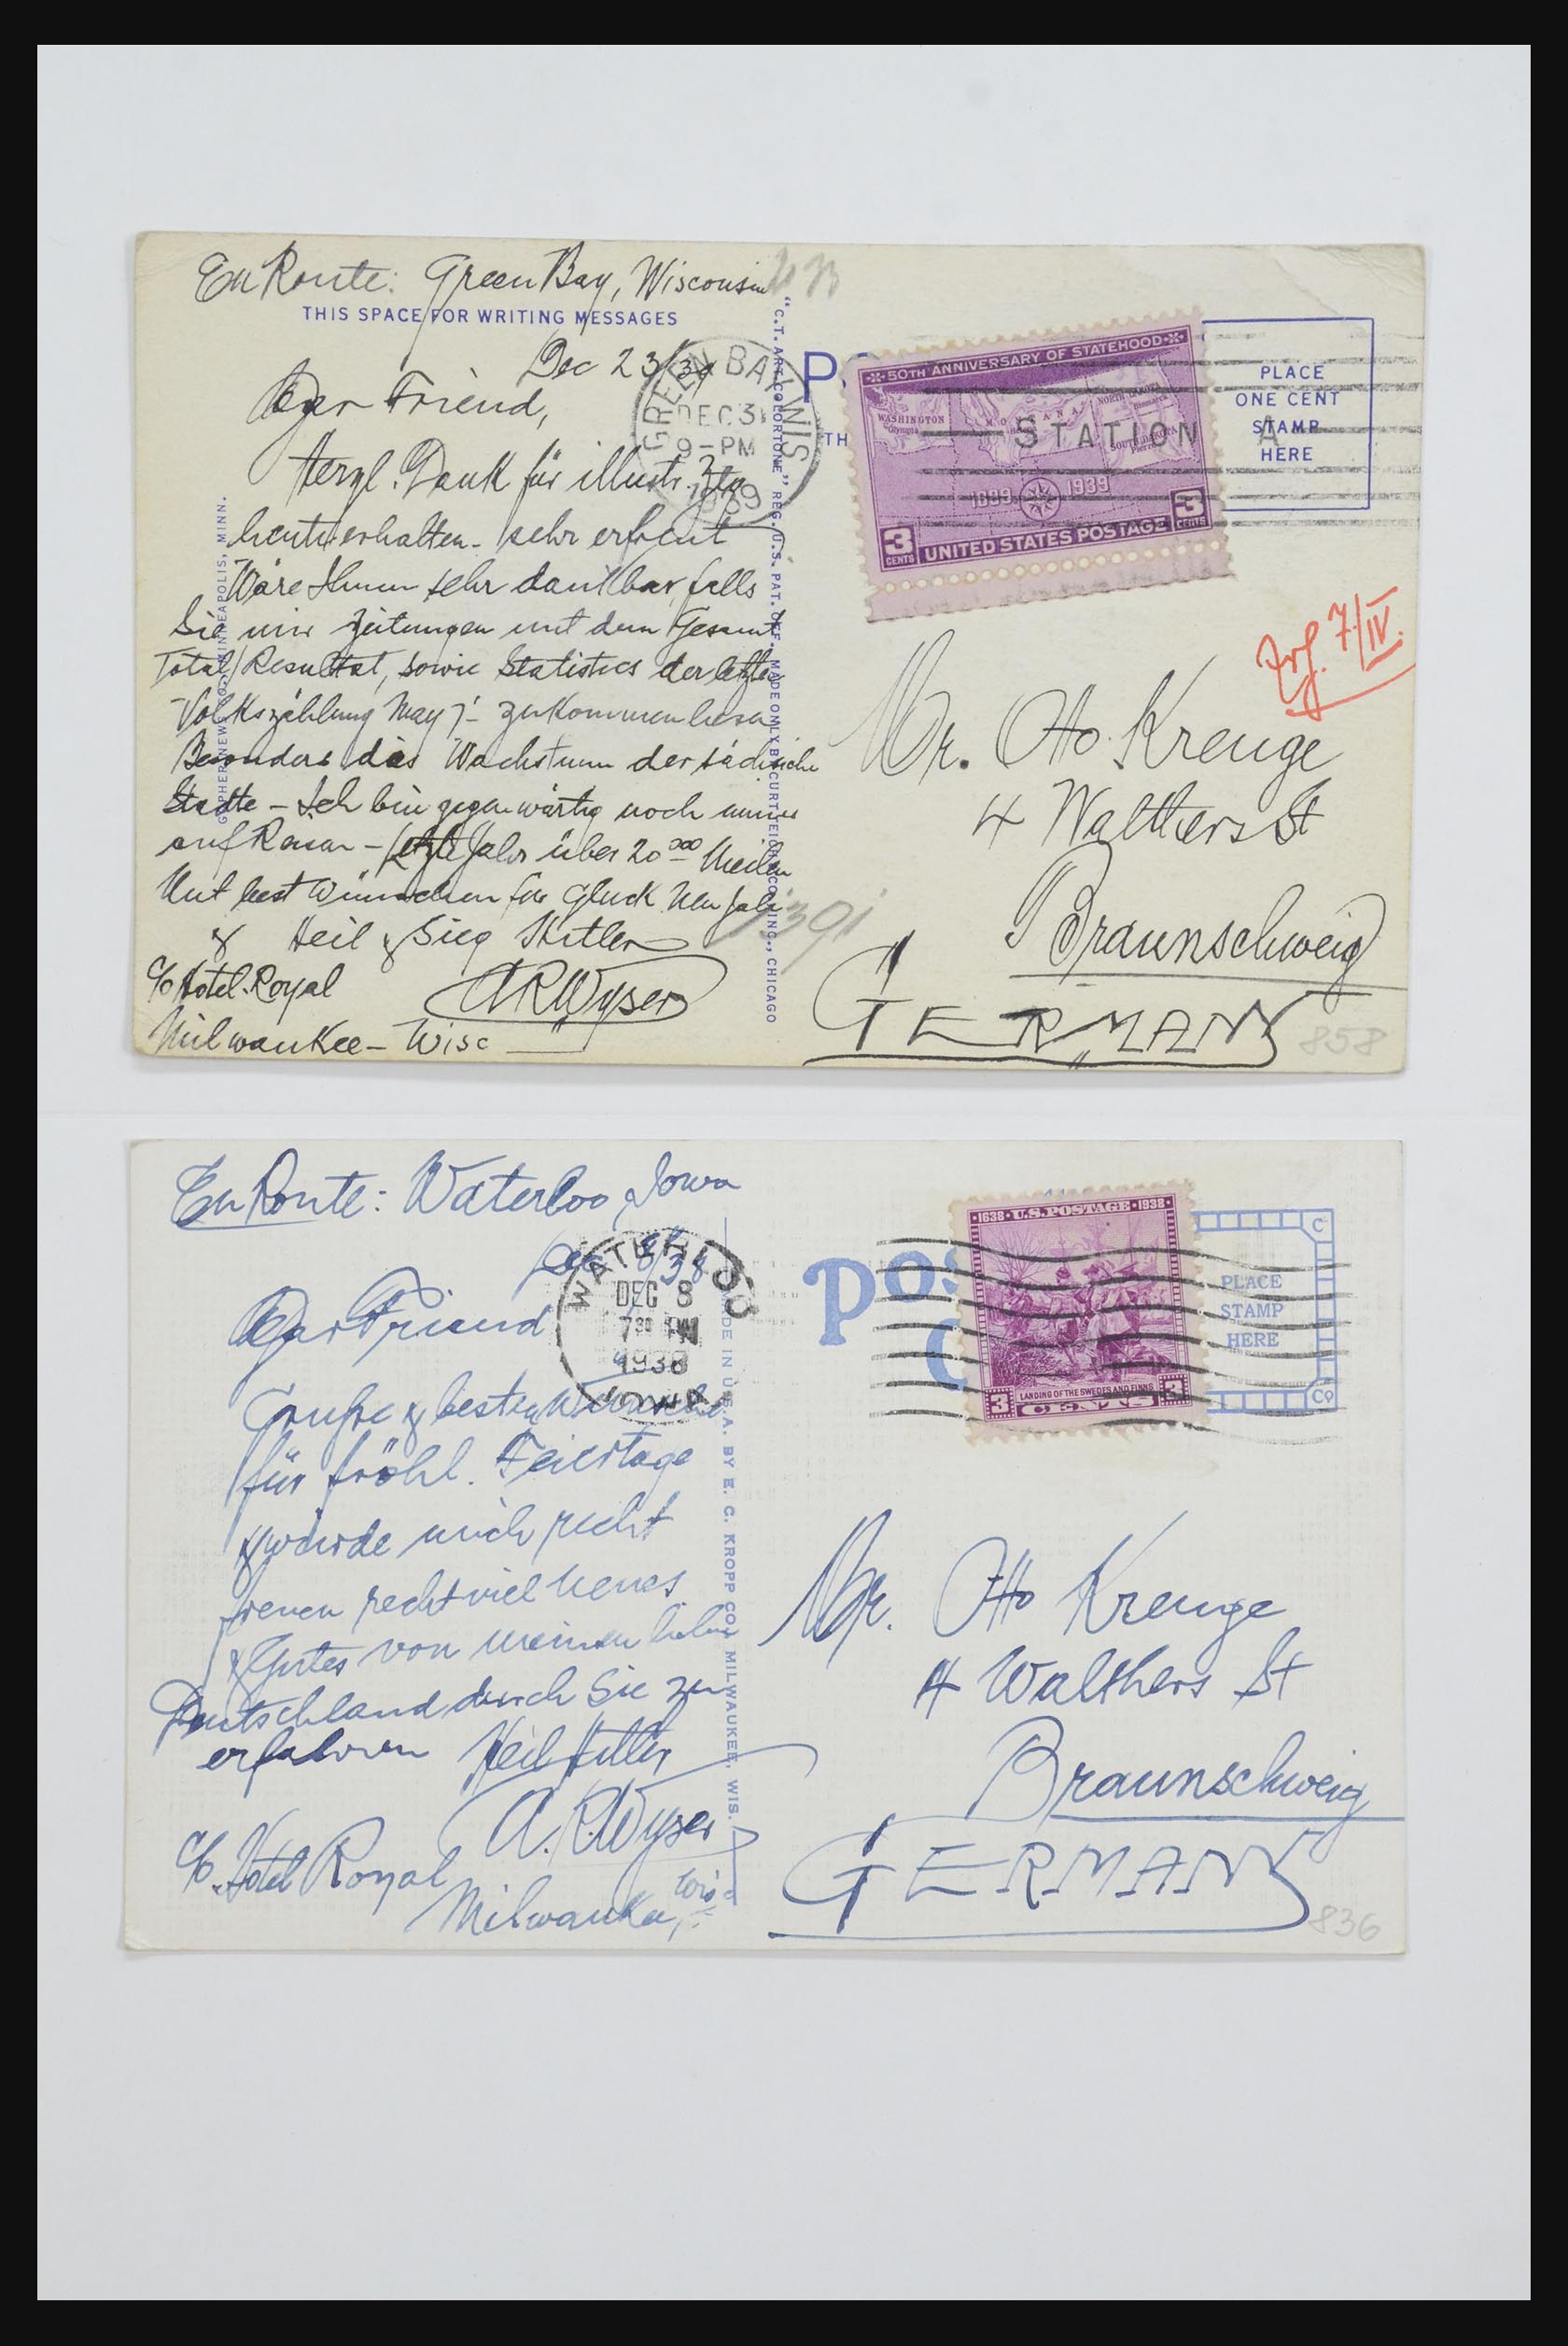 En Route: Green Bay, Wisconsin
THIS SPACE FOR WRITING MESSAGES
Dec 23/39
Dear Friend,
Herzl. Dank für illustr. Ztg
heute erhalten - sehr erfreut
Wäre Ihnen sehr dankbar, falls
Sie mir Zeitungen mit dem Gesamt
Total/Resultat, sowie Statistics der letzten
Volkszählung May zukommen
Besonders das Wachstum der
Städte - Ich bin gegenwärtig noch immer
auf Reisen - Letzte Jahr über 20 000 Meilen
Mit best Wünschen für Glück Neu Jahr
& Heil & Sieg Hitler
c/o Hotel Royal
A R Wyser
Milwaukee - Wisc
GREEN BAY WIS
DEC 31
9 - PM
1939
"C.T. ART-COLORTONE" REG. U.S. PAT. OFF. MADE ONLY BY CURT TEICH & CO., INC., CHICAGO
50TH ANNIVERSARY OF STATEHOOD
WASHINGTON
Olympia
MONTANA
NORTH DAKOTA
Bismarck
SOUTH DAKOTA
Pierre
1889 1939
3 CENTS UNITED STATES POSTAGE 3 CENTS
STATION A
PLACE
ONE CENT
STAMP
HERE
7/IV.
Mr. Otto Krenge
4 Walthers St
Braunschweig
GERMANY
858
En Route: Waterloo, Iowa
Dec 8/38
Dear Friend
Grüße & besten Wünsche
für fröhl. Feiertage
& würde mich recht
freuen recht viel neues
& Gutes von meinem lieben
Deutschland durch Sie zu
erfahren Heil Hitler
A. R. Wyser
c/o Hotel Royal
Milwaukee, Wis
WATERLOO
DEC 8
7 30 PM
1938
IOWA
MADE IN U.S.A. BY E. C. KROPP CO., MILWAUKEE, WIS.
1638 · U.S. POSTAGE · 1938
LANDING OF THE SWEDES AND FINNS
3 CENTS 3
POS
C
PLACE
STAMP
HERE
C
Co
Mr. Otto Krenge
4 Walthers St
Braunschweig
GERMANY
836